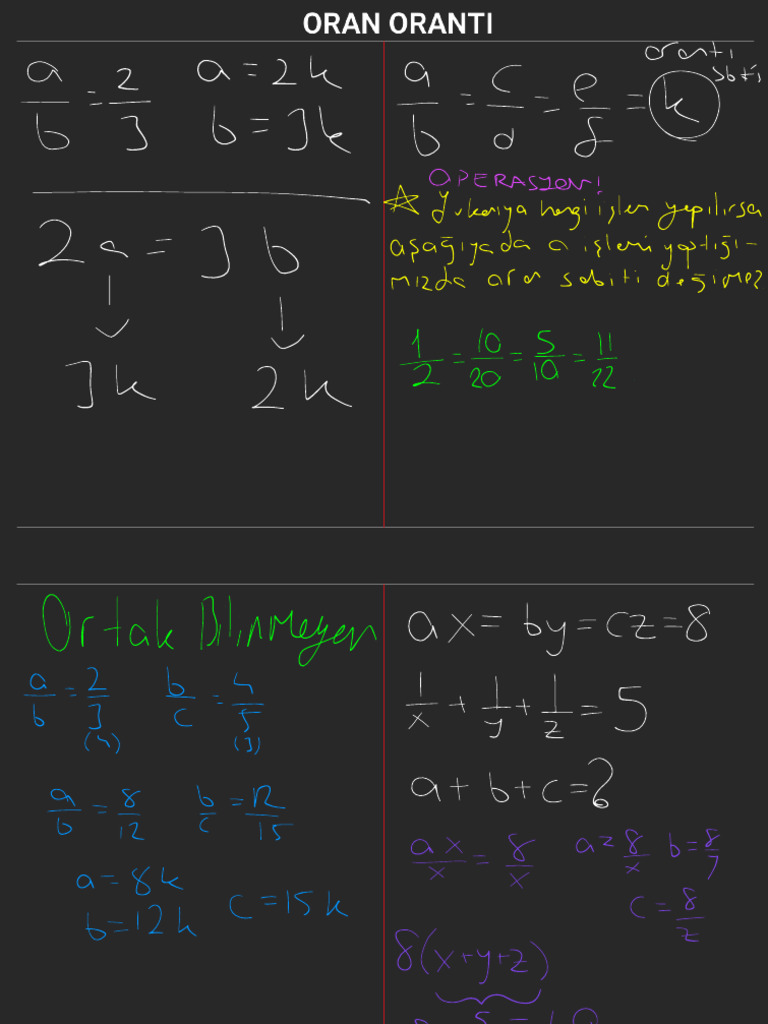 ORAN ORANTI
a/b = 2/3 a = 2k
b = 3k
2a = 3b
3k 2k
a/b = c/d = e/f = k
orantı
sbti
OPERASYON!
☆ Yukarıya hangi işlem yapılırsa
aşağıya da o işlemi yaptığı-
mızda oran sabiti değişmez
1/2 = 10/20 = 5/10 = 11/22
Ortak Bilinmeyen
a/b = 2/3 b/c = 4/5
(4) (3)
a/b = 8/12 b/c = 12/15
a = 8k
b = 12k c = 15k
ax = by = cz = 8
1/x + 1/y + 1/z = 5
a + b + c = ?
ax/x = 8/x a = 8/x b = 8/y
c = 8/z
8(x+y+z)